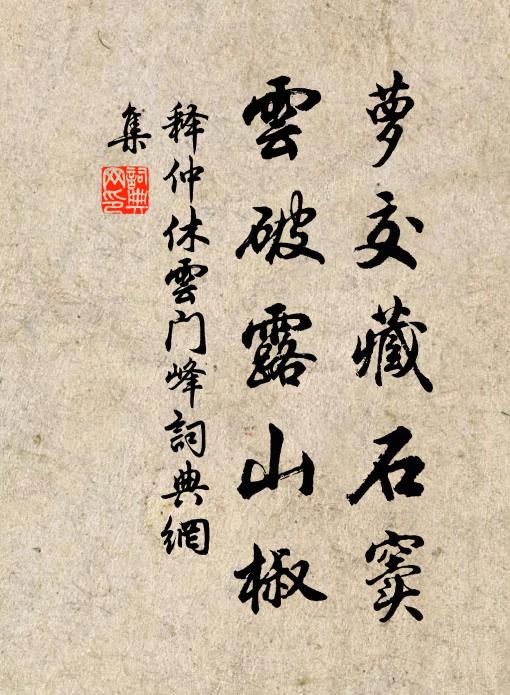 萝交藏石窦
雲破露山椒
释仲休雲门峰詞典網
集
詞典网印